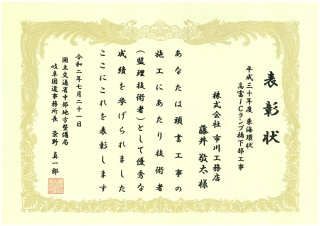 表彰状
平成三十年度 東海環状
高富ICランプ橋下部工事
株式会社 市川工務店
藤井 敬太様
あなたは頭書工事の
施工にあたり技術者
(監理技術者)として優秀な
成績を挙げられました
ここにこれを表彰します
令和二年七月二十一日
国土交通省中部地方整備局
岐阜国道事務所長 菜野 真一郎